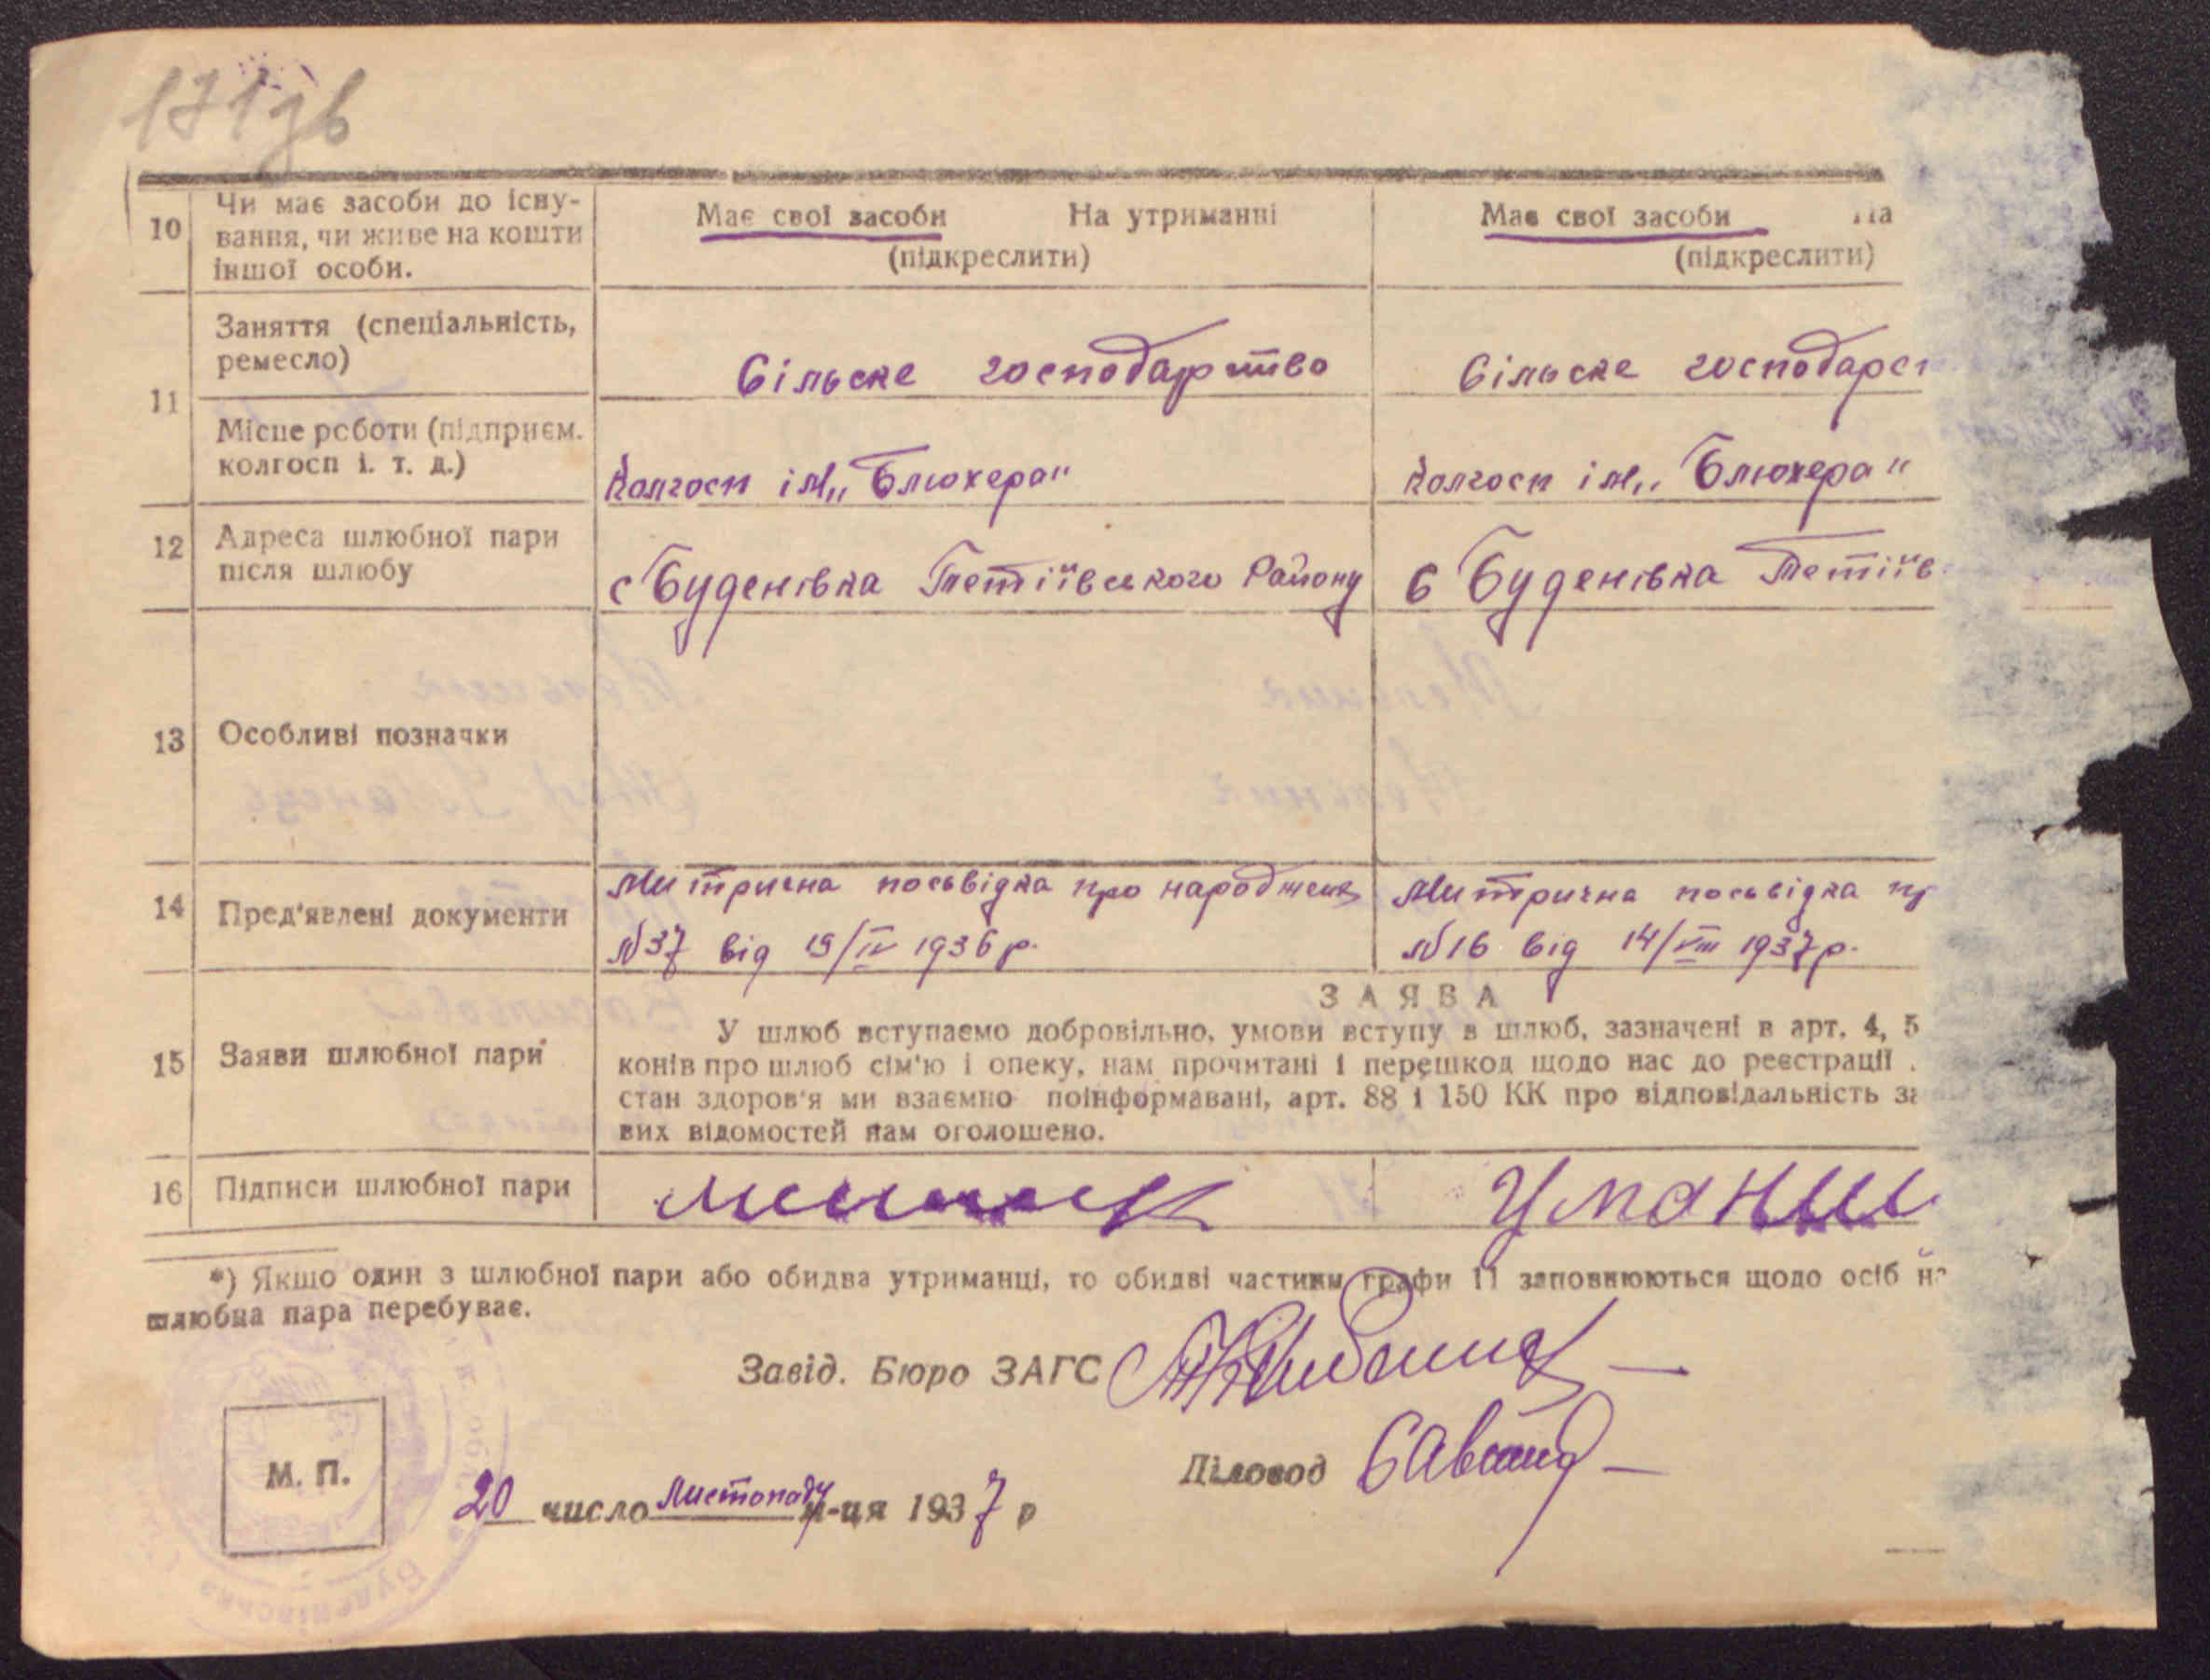 171зв
10 Чи має засоби до існу-
вання, чи живе на кошти
іншої особи.
Має свої засоби На утриманні
(підкреслити)
Має свої засоби На
(підкреслити)
11 Заняття (спеціальність,
ремесло)
Сільске господарство
Сільске господарст
Місце роботи (підприєм.
колгосп і. т. д.)
Колгосп ім„ Блюхера"
Колгосп ім„ Блюхера"
12 Адреса шлюбної пари
після шлюбу
с Буденівка Тетіївського Району
с Буденівка Тетіїв
13 Особливі позначки
14 Пред'явлені документи
Митрична посьвідка про народженя
N37 від 19/IV 1936 р.
Митрична посьвідка пр
N16 від 14/VIII 1937 р.
15 Заяви шлюбної пари
ЗАЯВА
У шлюб вступаємо добровільно, умови вступу в шлюб, зазначені в арт. 4, 5
конів про шлюб сім'ю і опеку, нам прочитані і перешкод щодо нас до реєстрації
стан здоров'я ми взаємно поінформавані, арт. 88 і 150 КК про відповідальність за
вих відомостей нам оголошено.
16 Підписи шлюбної пари
Умании
*) Якшо один з шлюбної пари або обидва утриманці, то обидві частини графи 11 заповнюються щодо осіб на
шлюбна пара перебуває.
Завід. Бюро ЗАГС
Діловод
М. П.
20 число Листопаду м-ця 1937 р
Буденівська